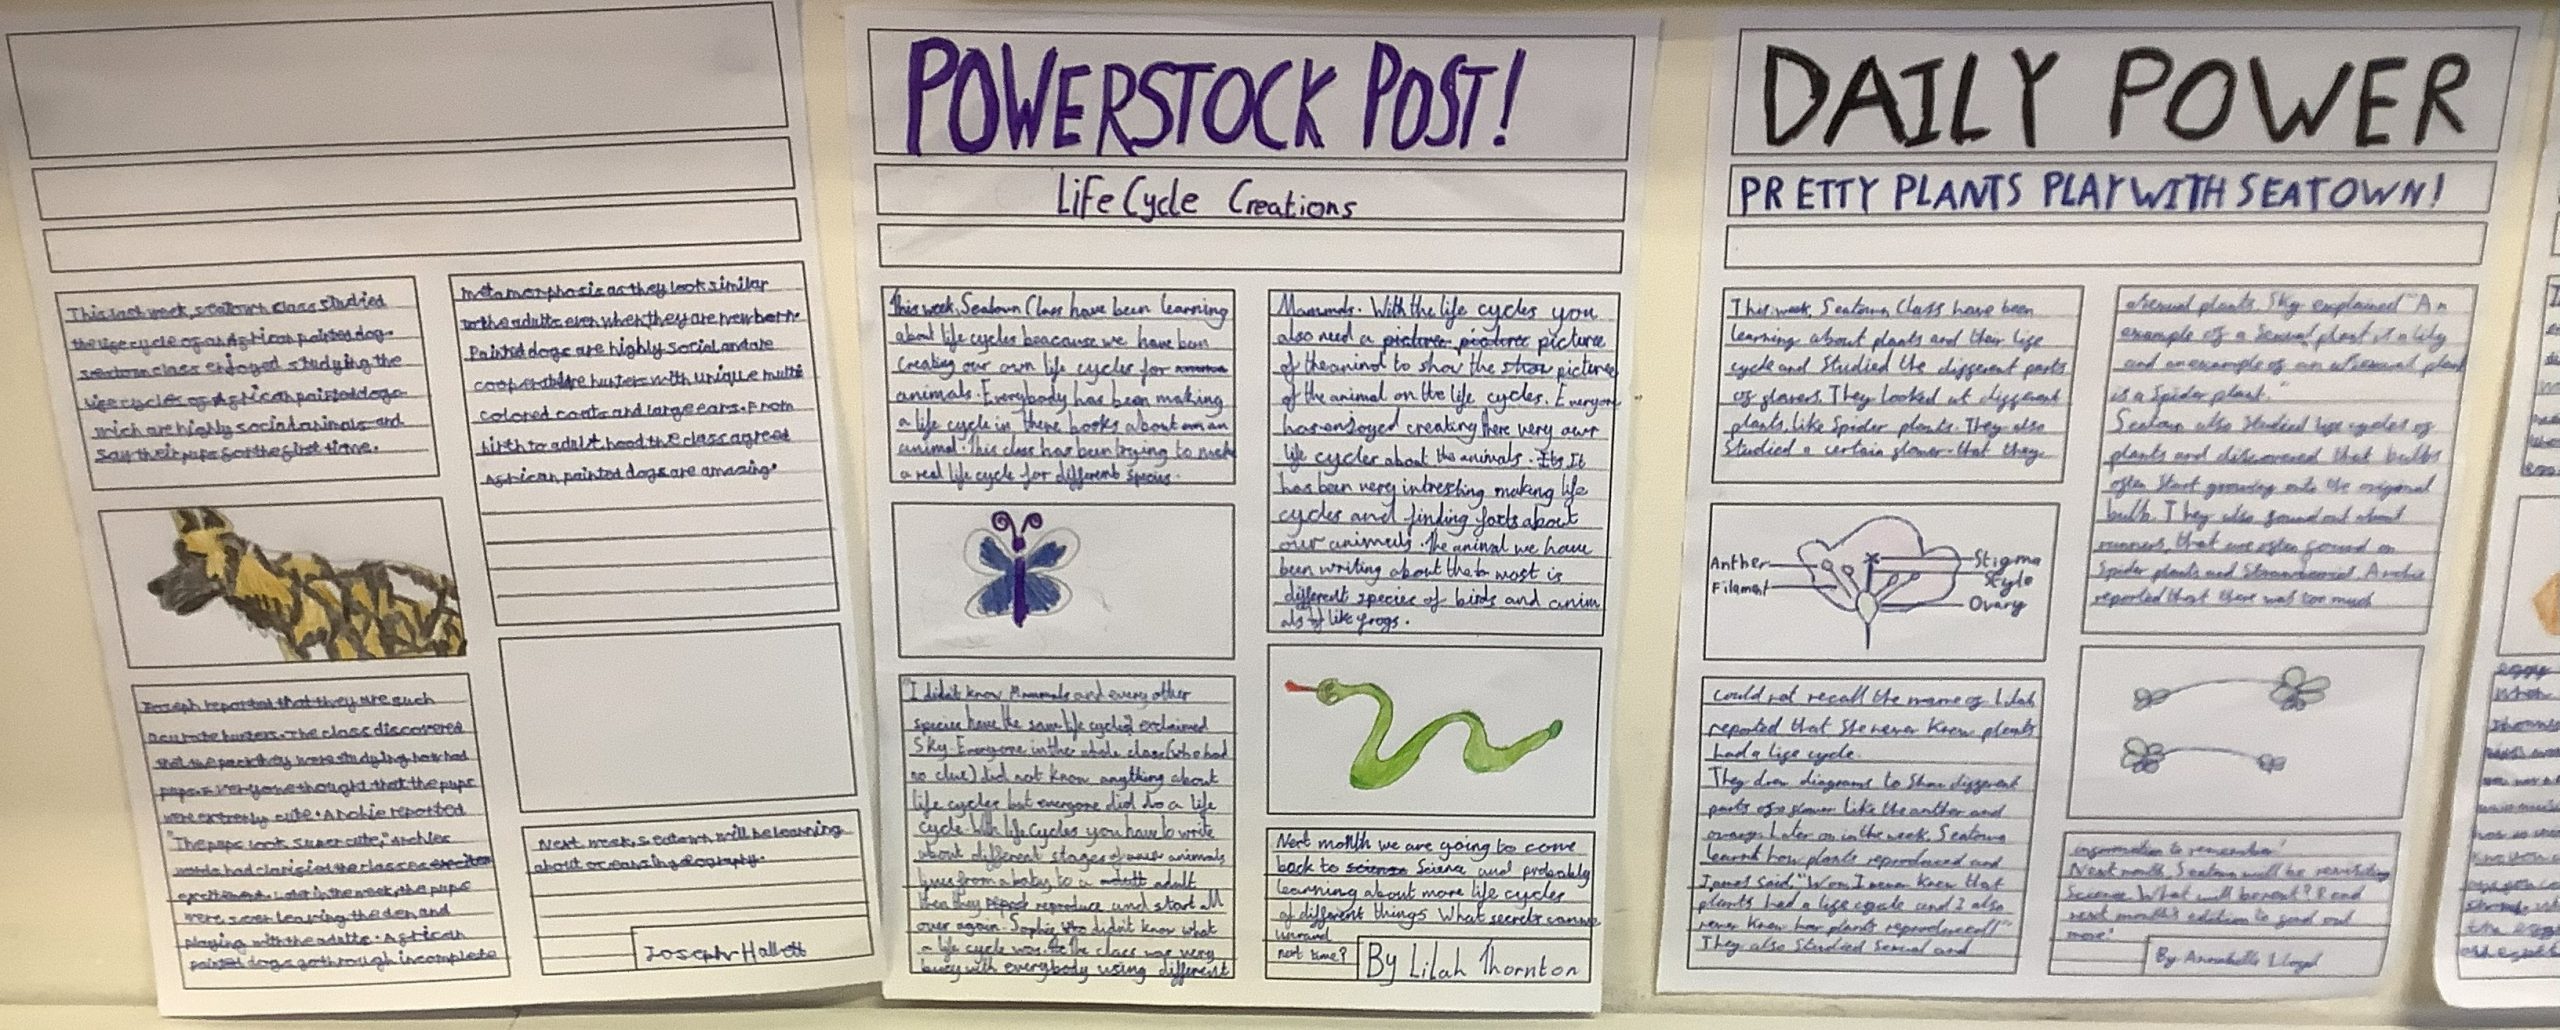 This last week, seatown class studied
the lifecycle of an African painted dog.
seatown class enjoyed studying the
life cycles of African painted dogs
wich are highly social animals and
saw their pups for the first time.
Joseph reported that they are such
accurate hunters. The class discovered
that the pack they were studying now had
pups. Everyone thought that the pups
were extremly cute. Archie reported
"The pups look super cute," archies
words had clarified the classes
excitement. Later in the week, the pups
were seen leaving the den and
playing with the adults. African
painted dogs go through incomplete
metamorphosis as they look similar
to the adults even when they are newborn.
Painted dogs are highly social and are
cooperative hunters with unique multi
colored coats and large ears. From
birth to adult hood the class agreed
African painted dogs are amazing.
Next week, seatown will be learning
about oceans in geography.
Joseph Hallett
POWERSTOCK POST!
Life Cycle Creations
This week, Seatown Class have been learning
about life cycles beacause we have ben
creating our own life cycles for
animals. Everybody has been making
a life cycle in there books about an
animal. This class has been trying to make
a real life cycle for different species.
"I didn't know Mammals and every other
species have the same life cycle" exclaimed
Sky. Everyone in the whole class (who had
no clue) did not know anything about
life cycles but everyone did do a life
cycle. With life cycles you have to write
about different stages of animals
lives from a baby to a adult
then they reproduce and start all
over again. Sophie didn't know what
a life cycle was. The class was very
busy with everybody using different
Mammals. With the life cycles you
also need a picture
of the animal to show the picture
of the animal on the life cycles. Everyone
has enjoyed creating there very own
life cycles about the animals. It
has been very intresting making life
cycles and finding facts about
our animals. The animal we have
been writing about the most is
different species of birds and anim
als like frogs.
Next month we are going to come
back to Science and probably
learning about more life cycles
of different things. What secrets can we
next time?
By Lilah Thornton
DAILY POWER
PRETTY PLANTS PLAY WITH SEATOWN!
This week, Seatown Class have been
learning about plants and their life
cycle and studied the different parts
of flowers. They looked at different
plants, like spider plants. They also
studied a certain flower that they
Anther
Filament
Stigma
Style
Ovary
could not recall the name of. Lilah
reported that she never knew plants
had a life cycle.
They drew diagrams to show different
parts of a flower like the anther and
ovary. Later on in the week, Seatown
learnt how plants reproduced and
James said, "Wow I never knew that
plants had a life cycle and I also
never knew how plants reproduced!"
They also studied sexual and
asexual plants. Sky explained "An
example of a sexual plant is a lily
and an example of an asexual plant
is a spider plant."
Seatown also studied life cycles of
plants and discovered that bulbs
often start growing onto the original
bulb. They also found out about
runners, that are often found on
spider plants and Strawberries. Archie
reported that there was too much
information to remember!
Next month, Seatown will be revisiting
Science. What will be next? Read
next month's edition to find out
more!
By Annabelle Lloyd